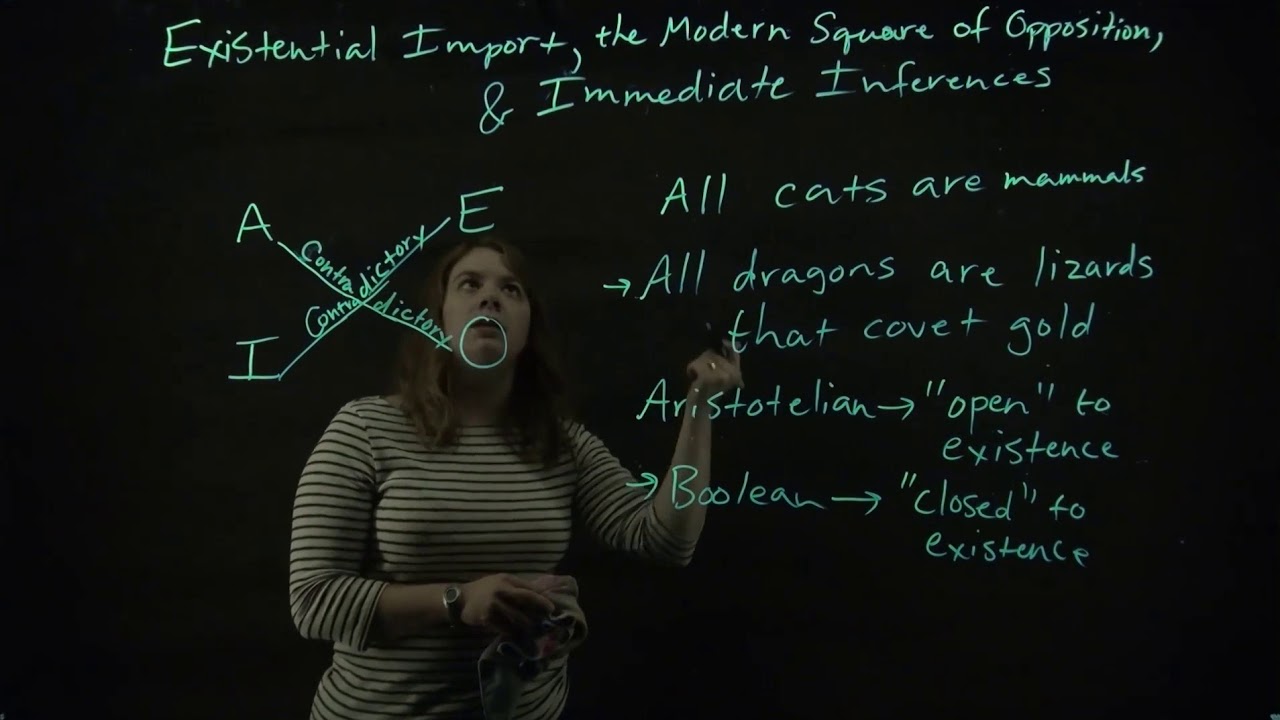 Existential Import, the Modern Square of Opposition,
& Immediate Inferences
A
E
Contradictory
Contradictory
I
O
All cats are mammals
→ All dragons are lizards
that covet gold
Aristotelian → "open" to
existence
→ Boolean → "closed" to
existence